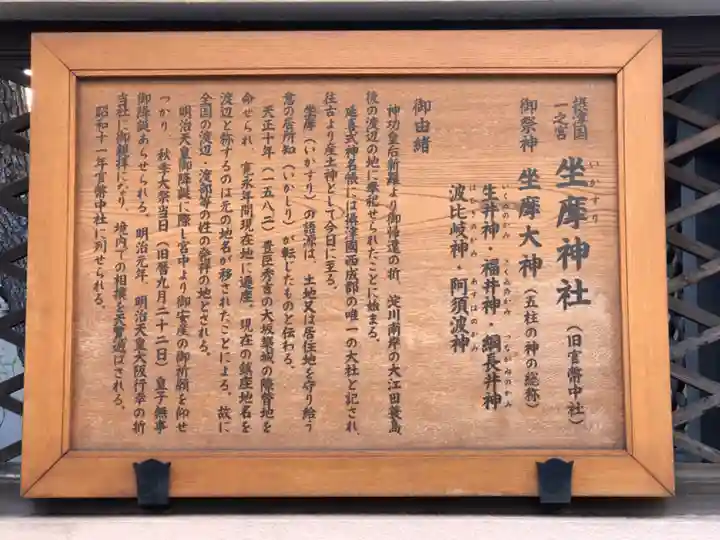 摂津国
一之宮
坐摩神社
いかすり
(旧官幣中社)
御祭神 坐摩大神 (五柱の神の総称)
いくゐのかみ さくゐのかみ つながゐのかみ
生井神・福井神・綱長井神
はひきのかみ あすはのかみ
波比岐神・阿須波神
御由緒
神功皇后新羅より御帰還の折、淀川南岸の大江田蓑島
後の渡辺の地に奉祀せられたことに始まる。
延喜式神名帳には摂津國西成郡の唯一の大社と記され、
往古より産土神として今日に至る。
坐摩(いかすり)の語源は、土地又は居住地を守り給う
意の居所知(いかしり)が転じたものと伝わる。
天正十年(一五八二)豊臣秀吉の大坂築城の際替地を
命ぜられ、寛永年間現在地に遷座。現在の鎮座地名を
渡辺と称するのは元の地名が移されたことによる。故に
全国の渡辺・渡部等の姓の発祥の地とされる。
明治天皇御降誕に際し宮中より御安産の御祈願を仰せ
つかり、秋季大祭当日(旧暦九月二十二日)皇子無事
御降誕あらせられる。明治元年、明治天皇大阪行幸の折
当社に御親拝になり、境内での相撲を天覧遊ばされる。
昭和十一年官幣中社に列せられる。